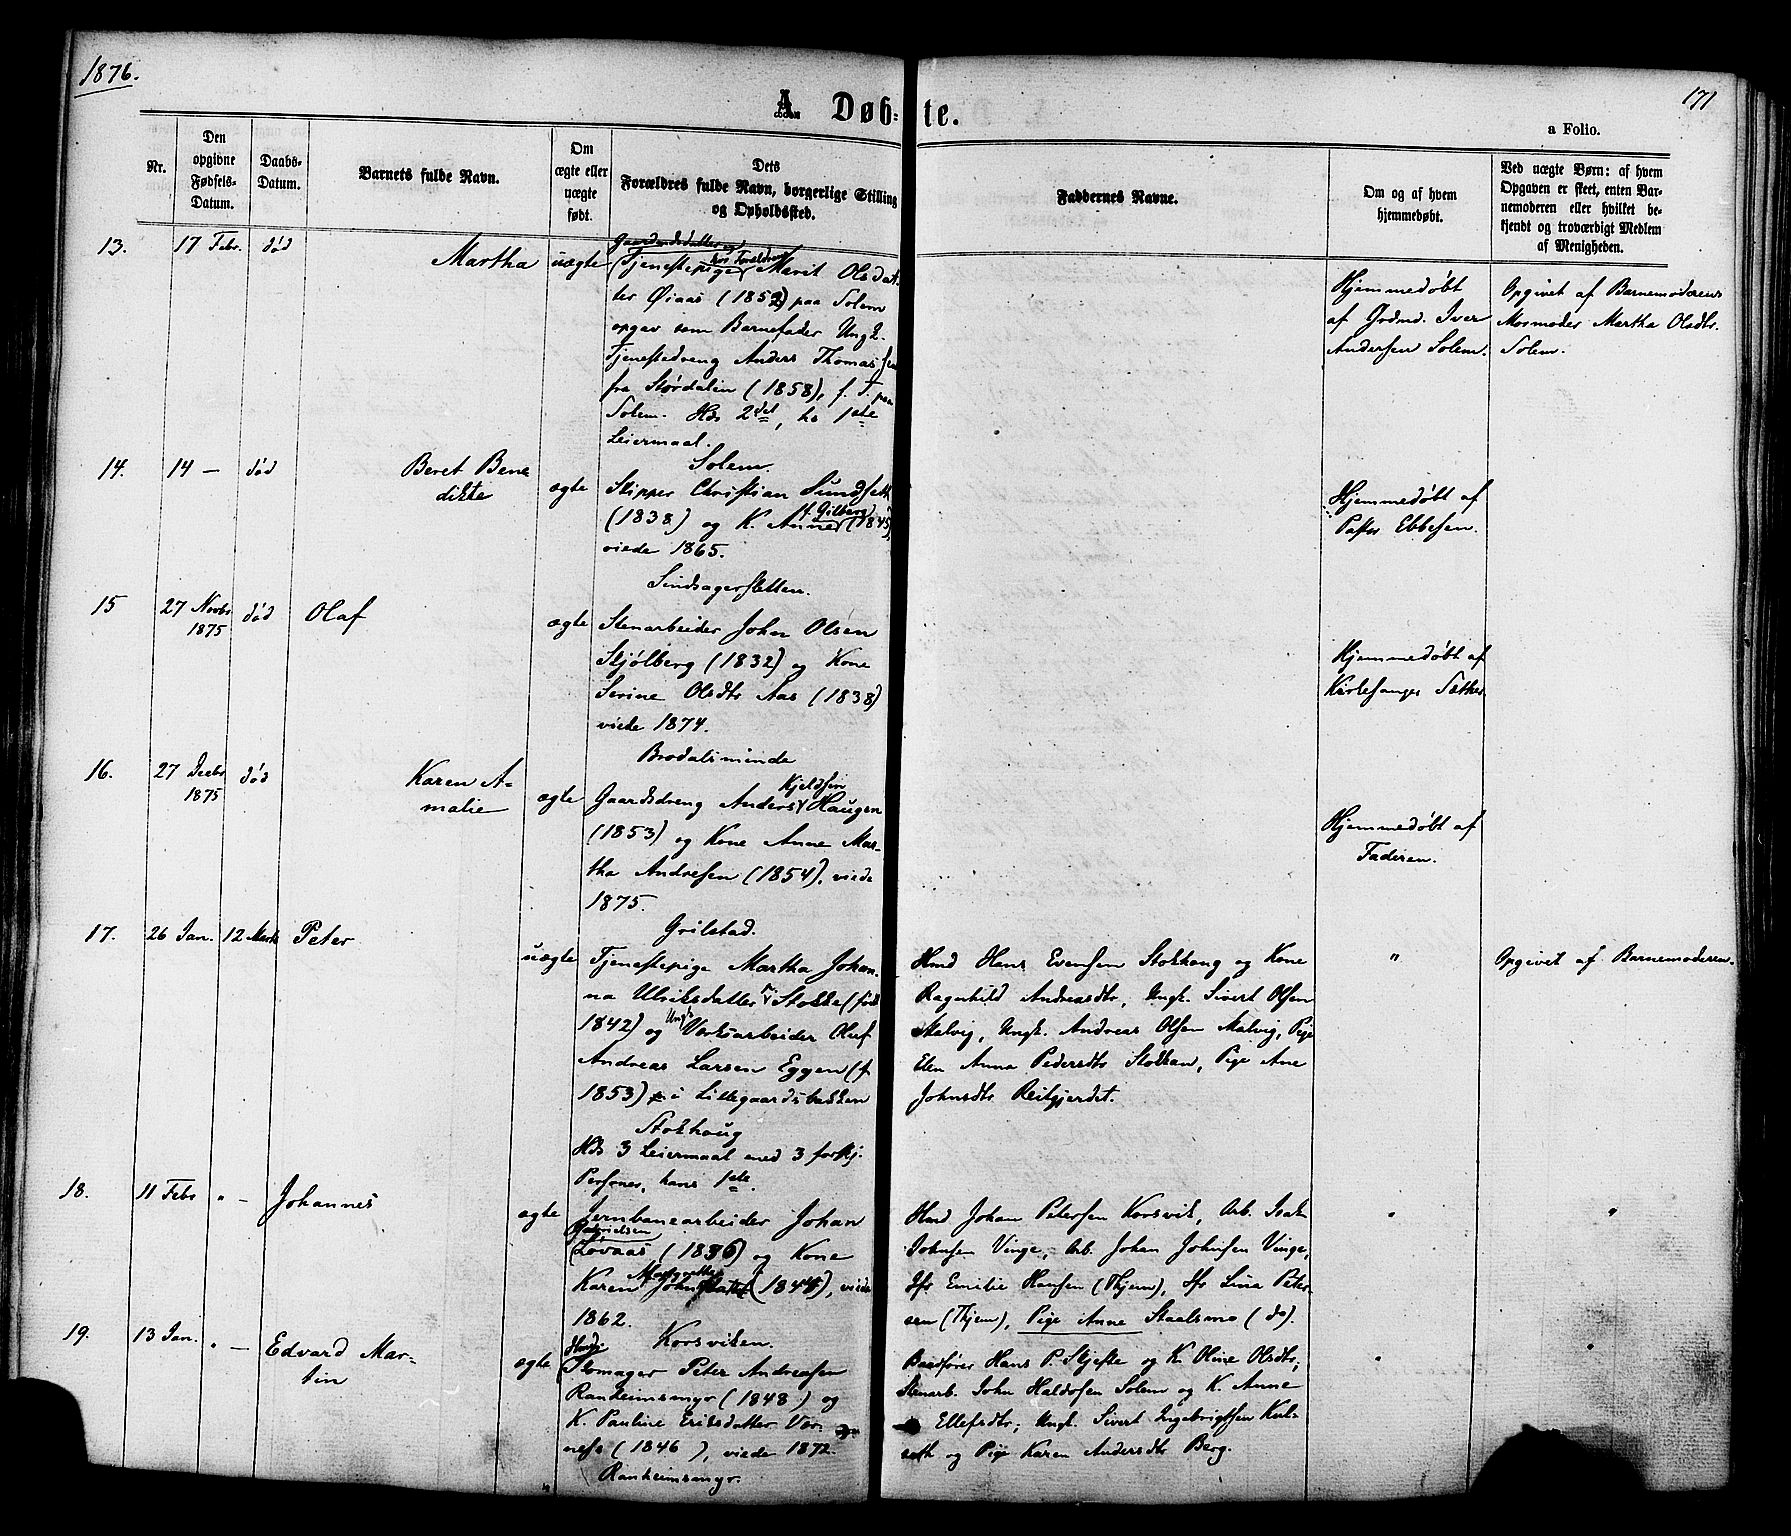 1876.
171
A. Døbte.
a Folio.
Nr.
Den opgivne Fødsels-Datum.
Daabs-Datum.
Barnets fulde Navn.
Om ægte eller uægte født.
Dets Forældres fulde Navn, borgerlige Stilling og Opholdssted.
Faddernes Navne.
Om og af hvem hjemmedøbt.
Ved uægte Børn: af hvem Opgaven er skeet, enten Barnemoderen eller hvilket bekjendt og troværdigt Medlem af Menigheden.
13. 17 Febr. død Martha uægte
Gaardmandsdatter og
Tjenestepige Marit Olsdat-
ter Øiaas (1852) paa Solem
opgav som Barnefader Ungk.
Tjenestedreng Anders Thomassen
fra Størdalen (1858), f. T. paa
Solem. Hds 2det, hs 1ste
Leiermaal.
Solem.
Hjemmedøbt
af Grdmd. Iver
Andersen Solem.
Opgivet af Barnemoderens
Mormoder Martha Olsdtr.
Solem.
14. 14 — død Beret Bene
dikte
ægte
Skipper Christian Sundseth
f. Gilberg
(1838) og K. Anne (1845),
viede 1865.
Sindsagersletten.
Hjemmedøbt af
Pastor Ebbesen.
15 27 Novbr 1875 død Olaf ægte
Stenarbeider John Olsen
Skjølberg (1832) og Kone
Serine Olsdtr Aas (1838)
viede 1874.
Brodalsminde
Hjemmedøbt af
Kirkesanger Sæther
16. 27 Decbr 1875 død Karen A-
malie
ægte
Kjeldsen
Gaardsdreng Anders Haugen
(1853) og Kone Anne Mar-
tha Andresen (1854), viede
1875.
Grilstad.
Hjemmedøbt af
Faderen.
17. 26 Jan. 12 Marts Peter uægte
Tjenestepige Martha Johan-
na Ulriksdatter Stokke (født
1842) og Ungk. Værksarbeider Oluf
Andreas Larsen Eggen (f.
1853) i Lillegaardsbakken
Stokhaug
Hds 3 Leiermaal med 3 forskj.
Personer, hans 1ste.
Hmd Hans Evensen Stokhaug og Kone
Ragnhild Andreasdtr, Ungk. Sivert Olsen
Malvig, Ungk. Andreas Olsen Malvig, Pige
Elen Anna Pedersdtr Stokkan, Pige Ane
Johnsdtr Reitgjerdet.
"
Opgivet af Barnemoderen.
18. 11 Febr " — Johannes ægte
Jernbanearbeider Johan
Danielsen
Løvaas (1836) og Kone
Margrethe
Karen (1844), viede
1862.
Korsviken.
Hmd Johan Petersen Korsvik, Arb. Isak
Johnsen Vinge, Arb. Johan Johnsen Vinge,
Jfr Emilie Hansen (Thjem), Jfr Lina Peter-
sen (Thjem), Pige Anne Staalsmo (do).
"
"
19. 13 Jan. " — Edvard Mar-
tin
ægte
Huusm.
Skomager Peter Andreasen
Ranheimsmyr (1848) og
K. Pauline Eriksdatter Vær-
nesse (1846), viede 1872.
Ranheimsmyr.
Baadfører Hans P. Skjefte og K. Oline Olsdtr,
Stenarb. John Haldosen Solem og K. Anne
Ellefsdtr; Ungk. Sivert Ingebrigtsen Kul-
seth og Pige Karen Andersdtr Berg.
"
"